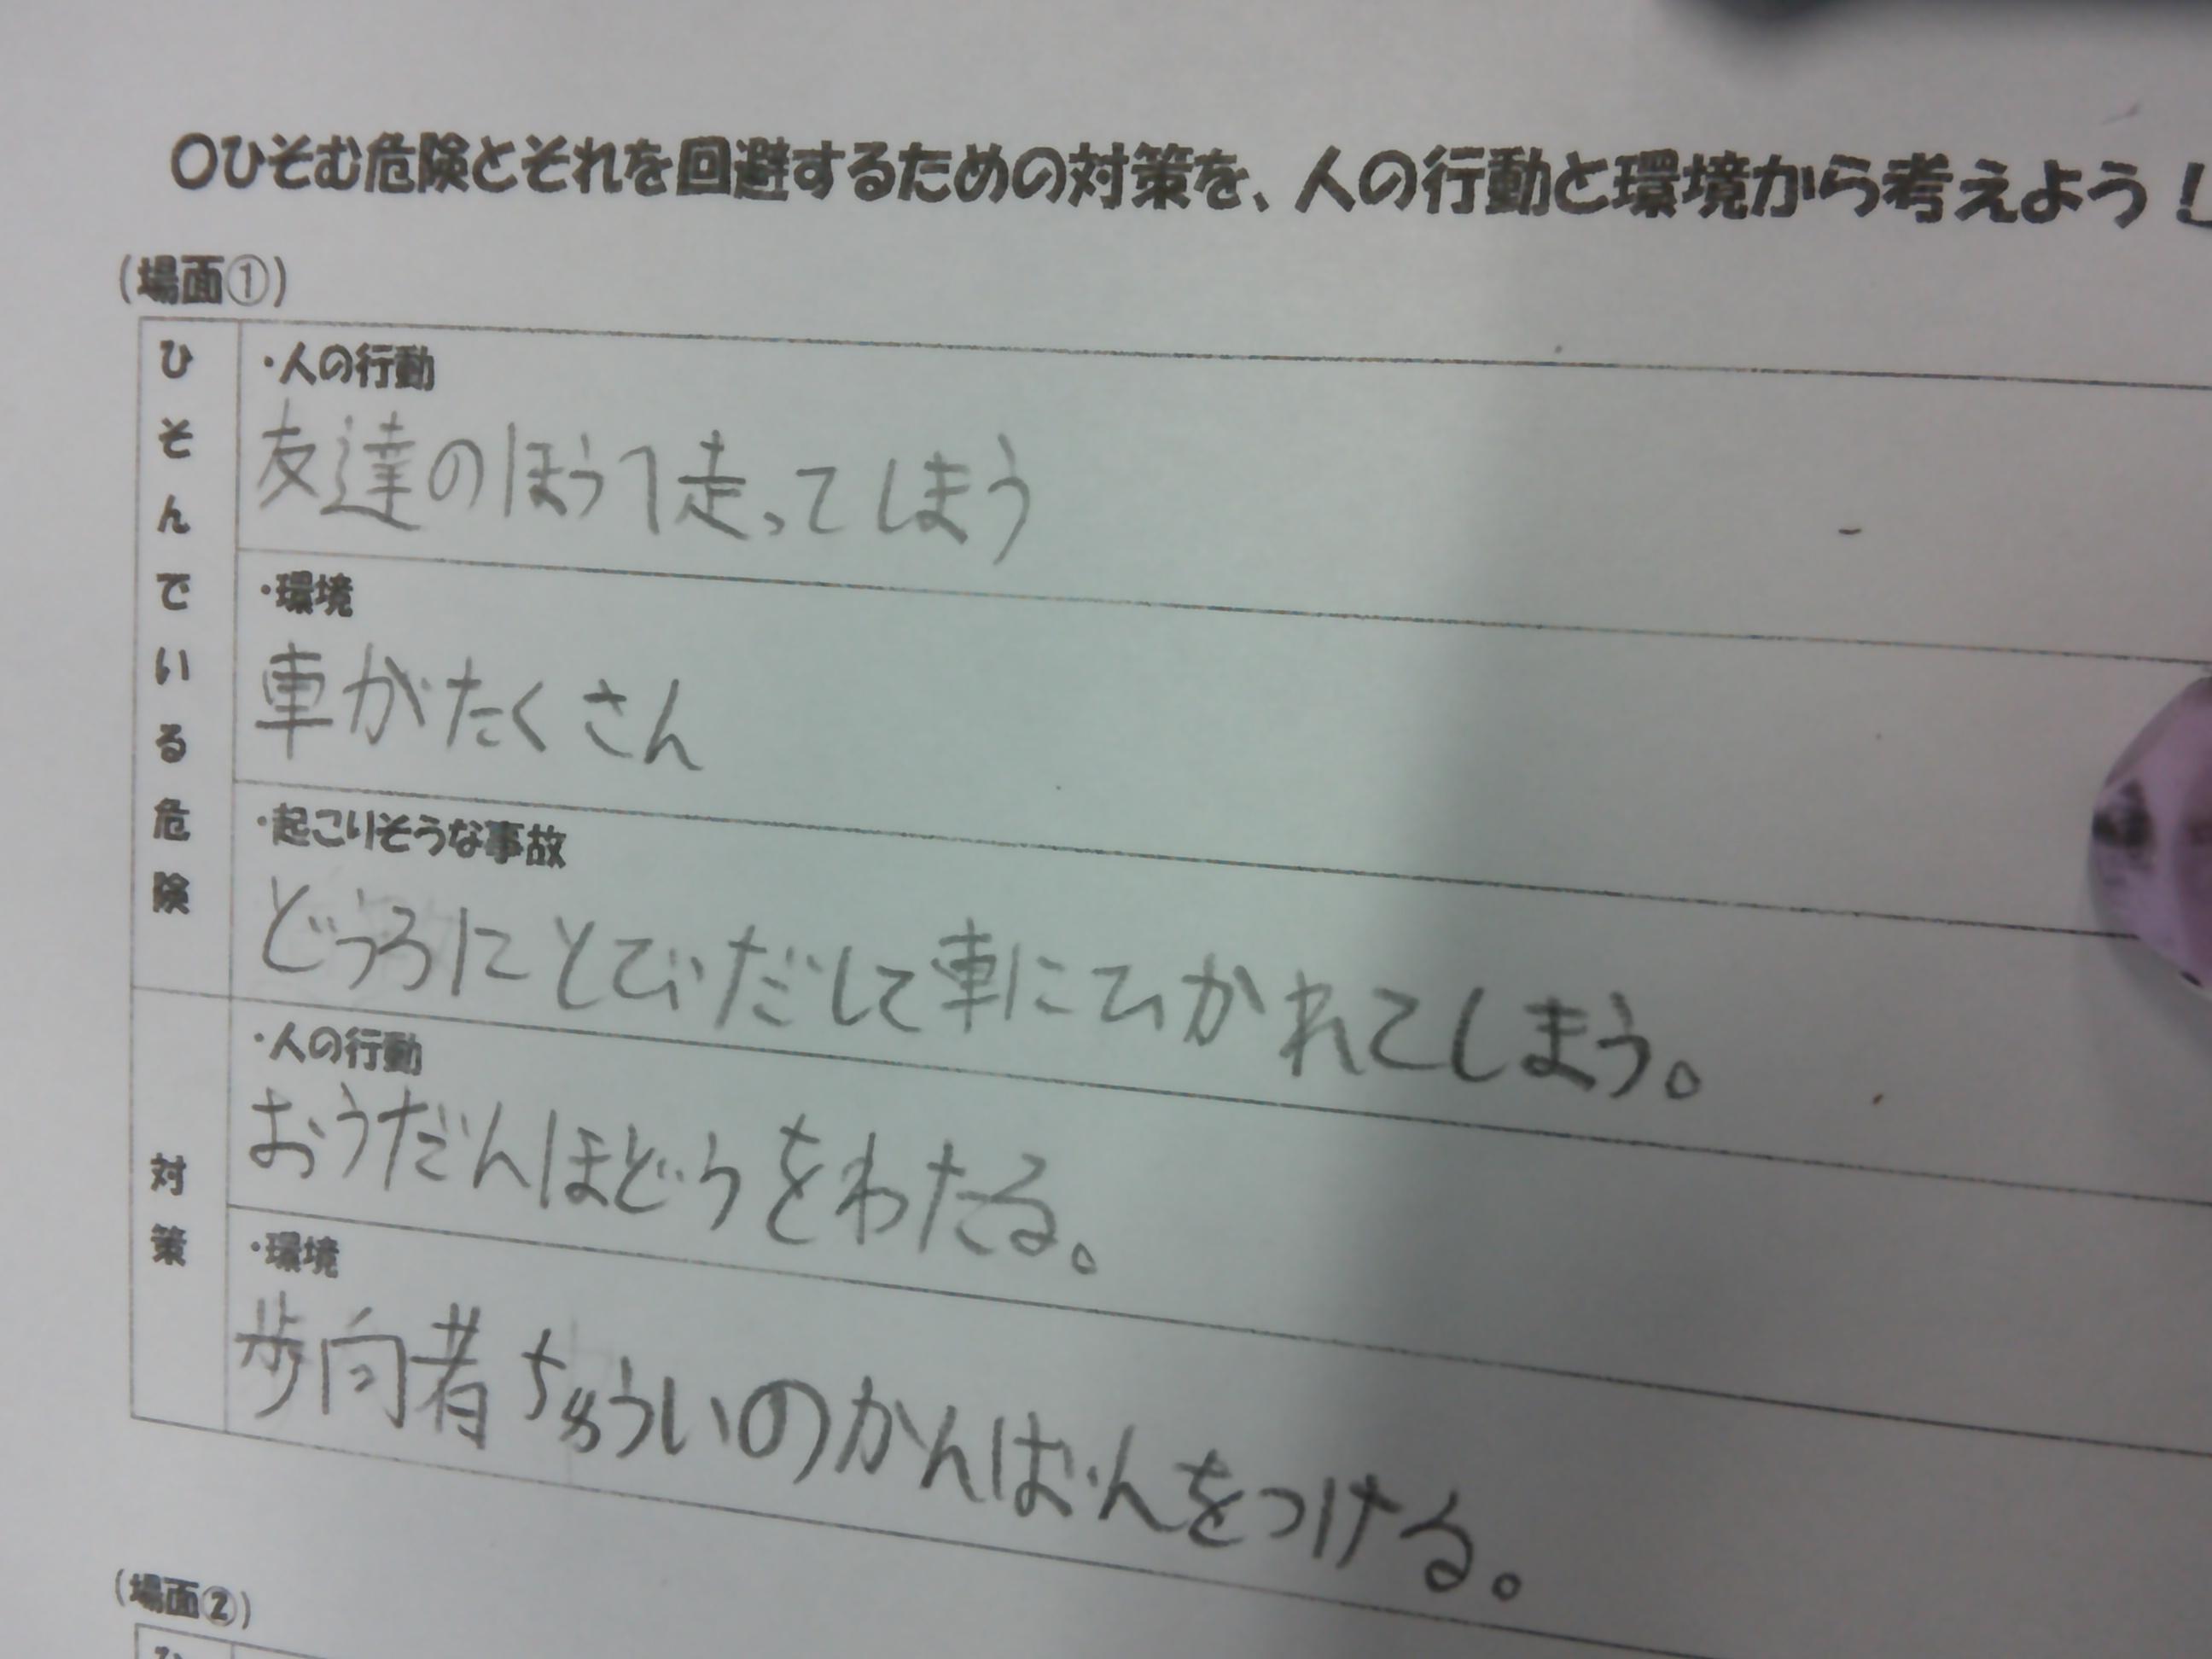 ○ひそむ危険とそれを回避するための対策を、人の行動と環境から考えよう！
(場面①)
ひそんでいる危険
・人の行動
友達のほうへ走ってしまう
・環境
車がたくさん
・起こりそうな事故
どうろにとびだして車にひかれてしまう。
対策
・人の行動
おうだんほどうをわたる。
・環境
歩向者ちゅういのかんばんをつける。
(場面②)
ひ